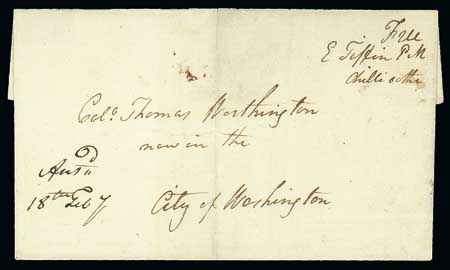 Free
E Tiffin P.M
Chillicothe
Colo. Thomas Worthington
now in the
City of Washington
Ansd
18th Feby